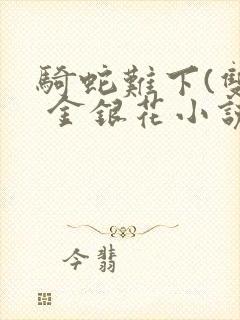 騎蛇難下(雙
金銀花小說
今翡